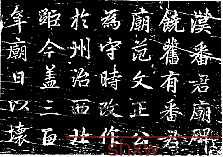 漢番君廟碑
饒舊有番君
廟范文正公
為守時改作
於州治西北
距今盖三百
年廟日以壞